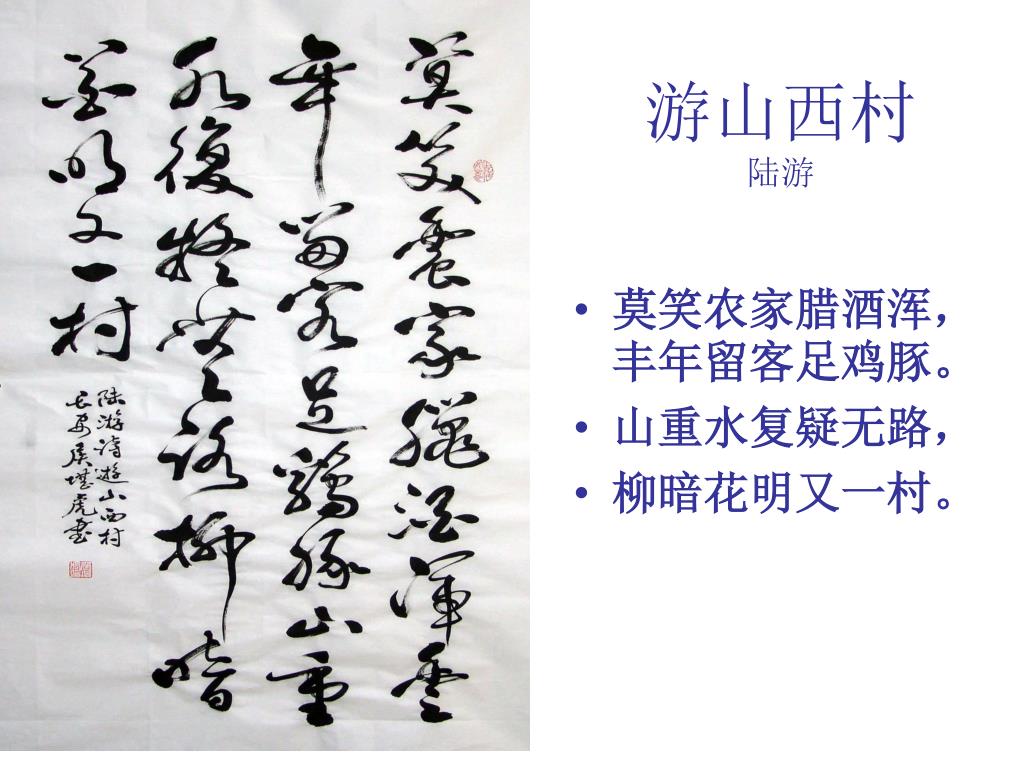 莫笑農家臘酒渾豐
年留客足鷄豚山重
水復疑無路柳暗
花明又一村
陆游詩遊山西村
長安侯堪虎書
游山西村
陆游
• 莫笑农家腊酒浑，
丰年留客足鸡豚。
• 山重水复疑无路，
• 柳暗花明又一村。